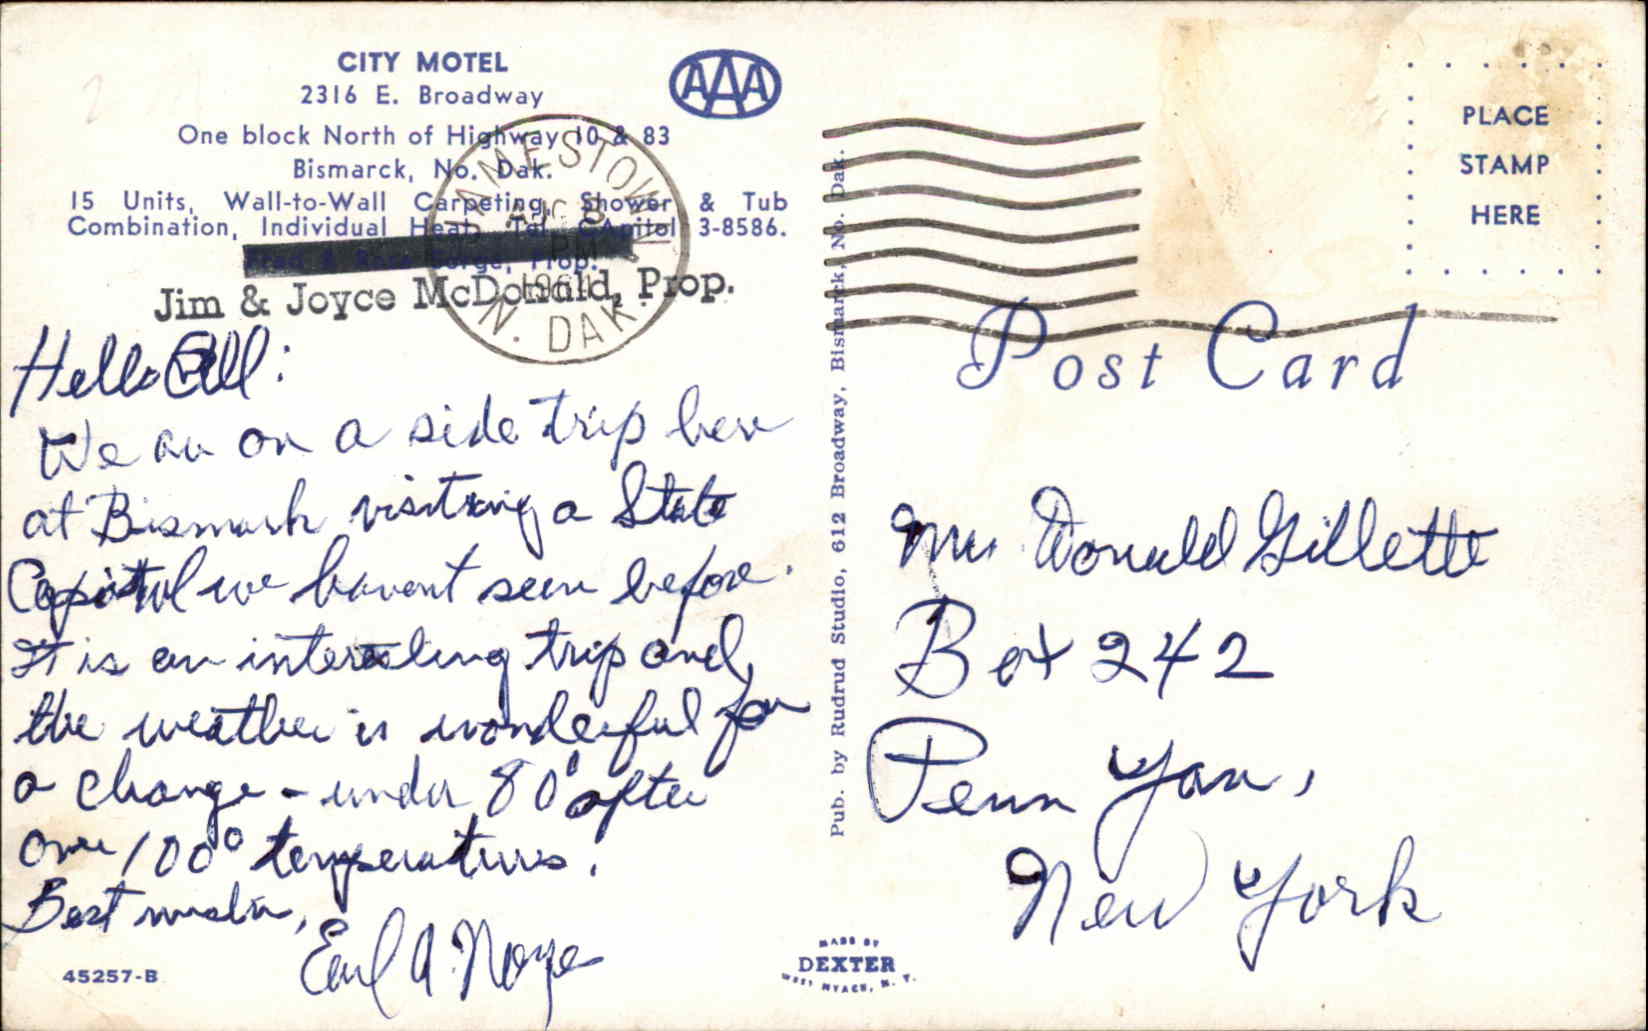 CITY MOTEL
2316 E. Broadway
One block North of Highway 10 & 83
Bismarck, No. Dak.
15 Units, Wall-to-Wall Carpeting, Shower & Tub
Combination, Individual Heat, Tel. CApitol 3-8586.
Prop.
Jim & Joyce McDonald, Prop.
AAA
JAMESTOWN
AUG 8
PM
N. DAK.
PLACE
STAMP
HERE
Post Card
Hello All:
We are on a side trip here
at Bismark visiting a State
Capitol we havent seen before.
It is an interesting trip and
the weather is wonderful for
a change - under 80° after
over 100° temperatures.
Best wishes,
Earl A. Noye
45257-B
Pub. by Rudrud Studio, 612 Broadway, Bismarck, No. Dak.
Donald Gillette
Box 242
Penn Yan,
New York
MADE BY
DEXTER
WEST NYACK, N. Y.